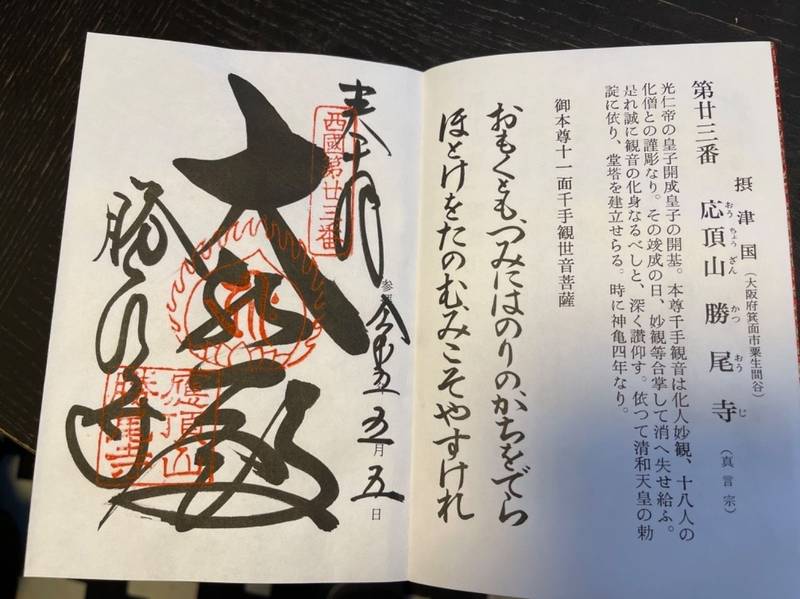 摂津国（大阪府箕面市粟生間谷）
第廿三番　応頂山　勝尾寺（真言宗）
おうちょうざん　かつおうじ
光仁帝の皇子開成皇子の開基。本尊千手観音は化人妙観、十八人の
化僧との謹彫なり。その竣成の日、妙観等合掌して消へ失せ給ふ。
是れ誠に観音の化身なるべしと、深く讃仰す。依つて清和天皇の勅
諚に依り、堂塔を建立せらる。時に神亀四年なり。
御本尊十一面千手観世音菩薩
おもくとも、つみにはのりのかちをでら
ほとけをたのむみこそやすけれ
奉拝
五月五日
西國第廿三番
大悲殿
勝尾寺
應頂山
勝尾寺